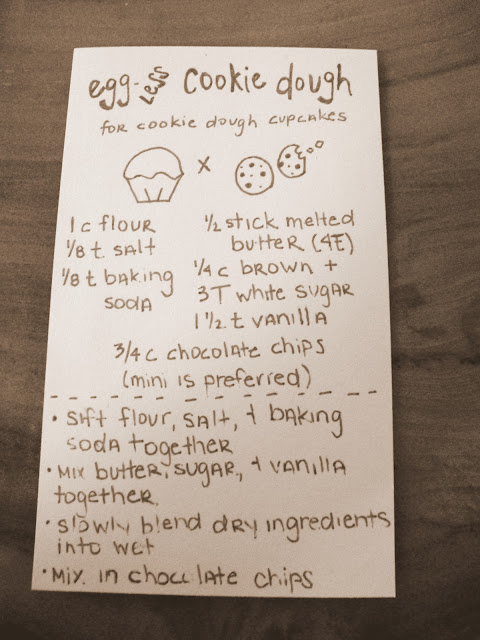 egg-less cookie dough
for cookie dough cupcakes
x
1 c flour
1/8 t. salt
1/8 t baking
soda
1/2 stick melted
butter (4T)
1/4 c brown +
3T white sugar
1 1/2 t vanilla
3/4 c chocolate chips
(mini is preferred)
• sift flour, salt, + baking
soda together
• Mix butter, sugar, + vanilla
together
• slowly blend dry ingredients
into wet
• Mix in chocolate chips